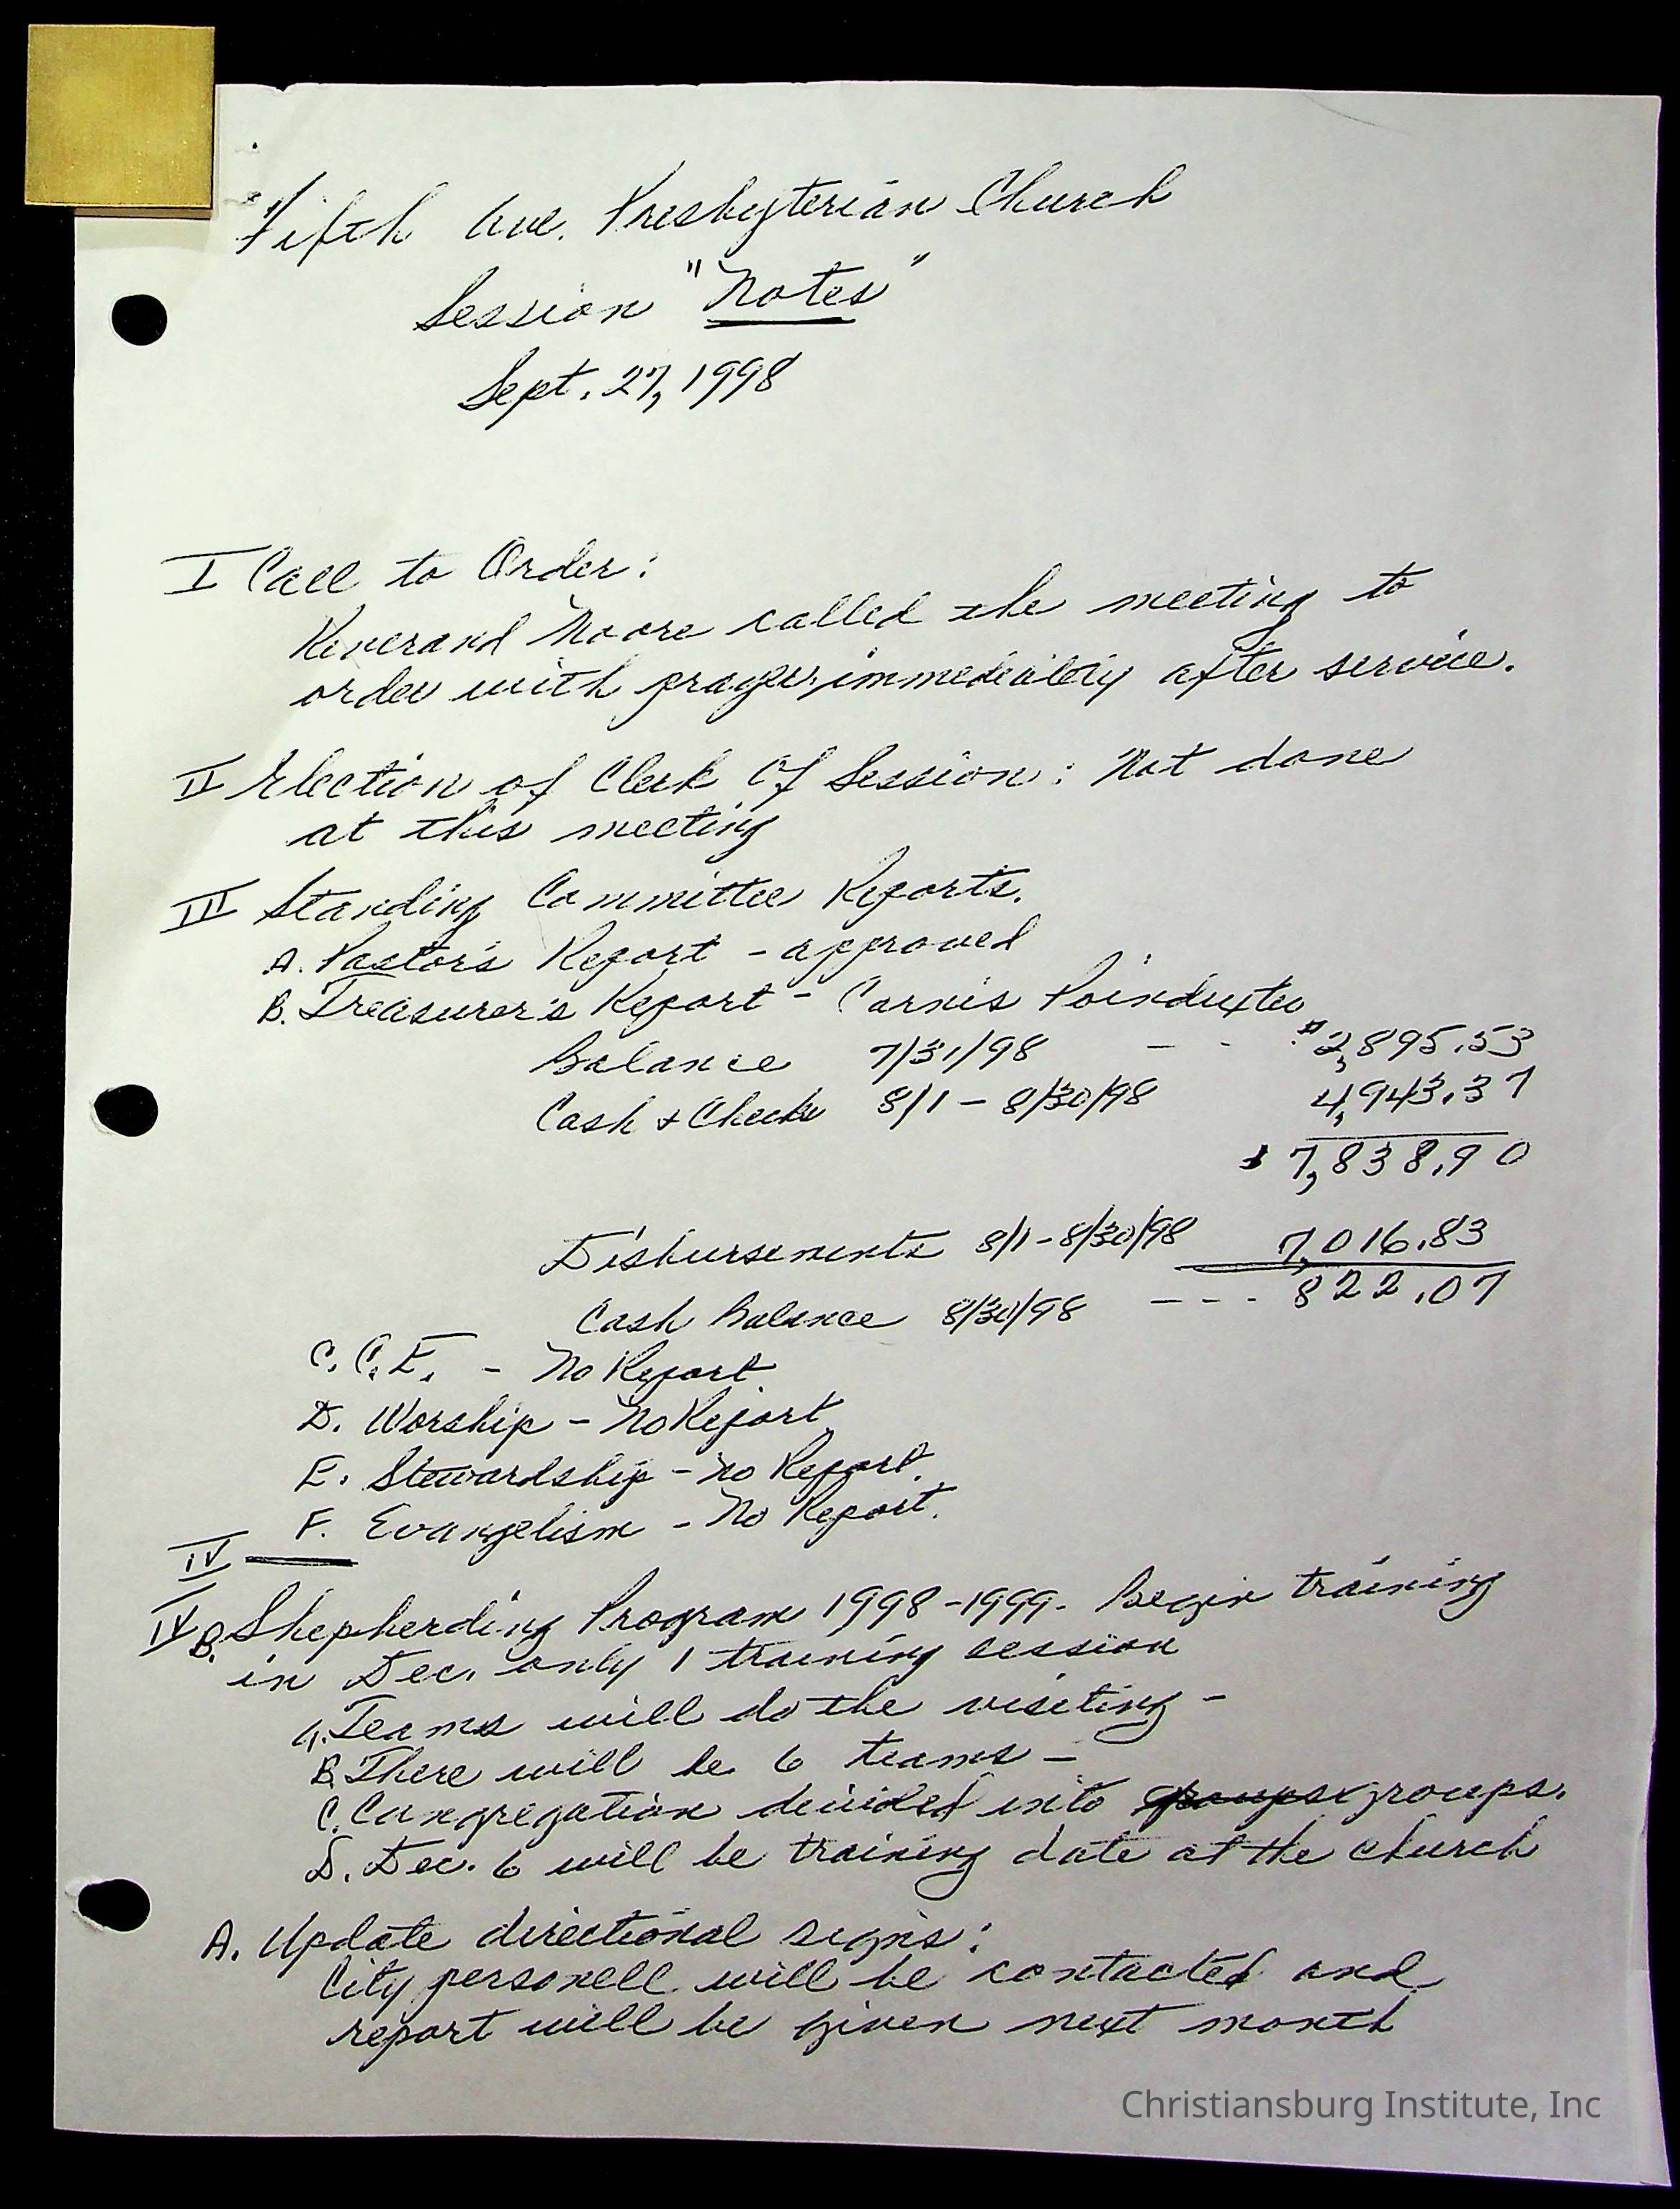 Fifth Ave. Presbyterian Church
Session "Notes"
Sept. 27, 1998
I Call to Order:
Reverand Moore called the meeting to
order with prayer, immediately after service.
II Election of Clerk Of Session: Not done
at this meeting
III Standing Committee Reports.
A. Pastor's Report - approved
B. Treasurer's Report - Carnis Poindexter
Balance 7/31/98 - - $2,895.53
Cash & Checks 8/1 - 8/30/98 4,943.37
$ 7,838.90
Disbursements 8/1 - 8/30/98 7,016.83
Cash Balance 8/30/98 - - - 822.07
C. C.E. - No Report
D. Worship - No Report
E. Stewardship - No Report.
F. Evangelism - No Report.
IV
IV B. Shepherding Program 1998-1999. Begin training
in Dec. only 1 training session
A. Teams will do the visiting -
B. There will be 6 teams -
C. Congregation devided into groups groups.
D. Dec. 6 will be training date at the church
A. Update directional signs:
City personell will be contacted and
report will be given next month
Christiansburg Institute, Inc